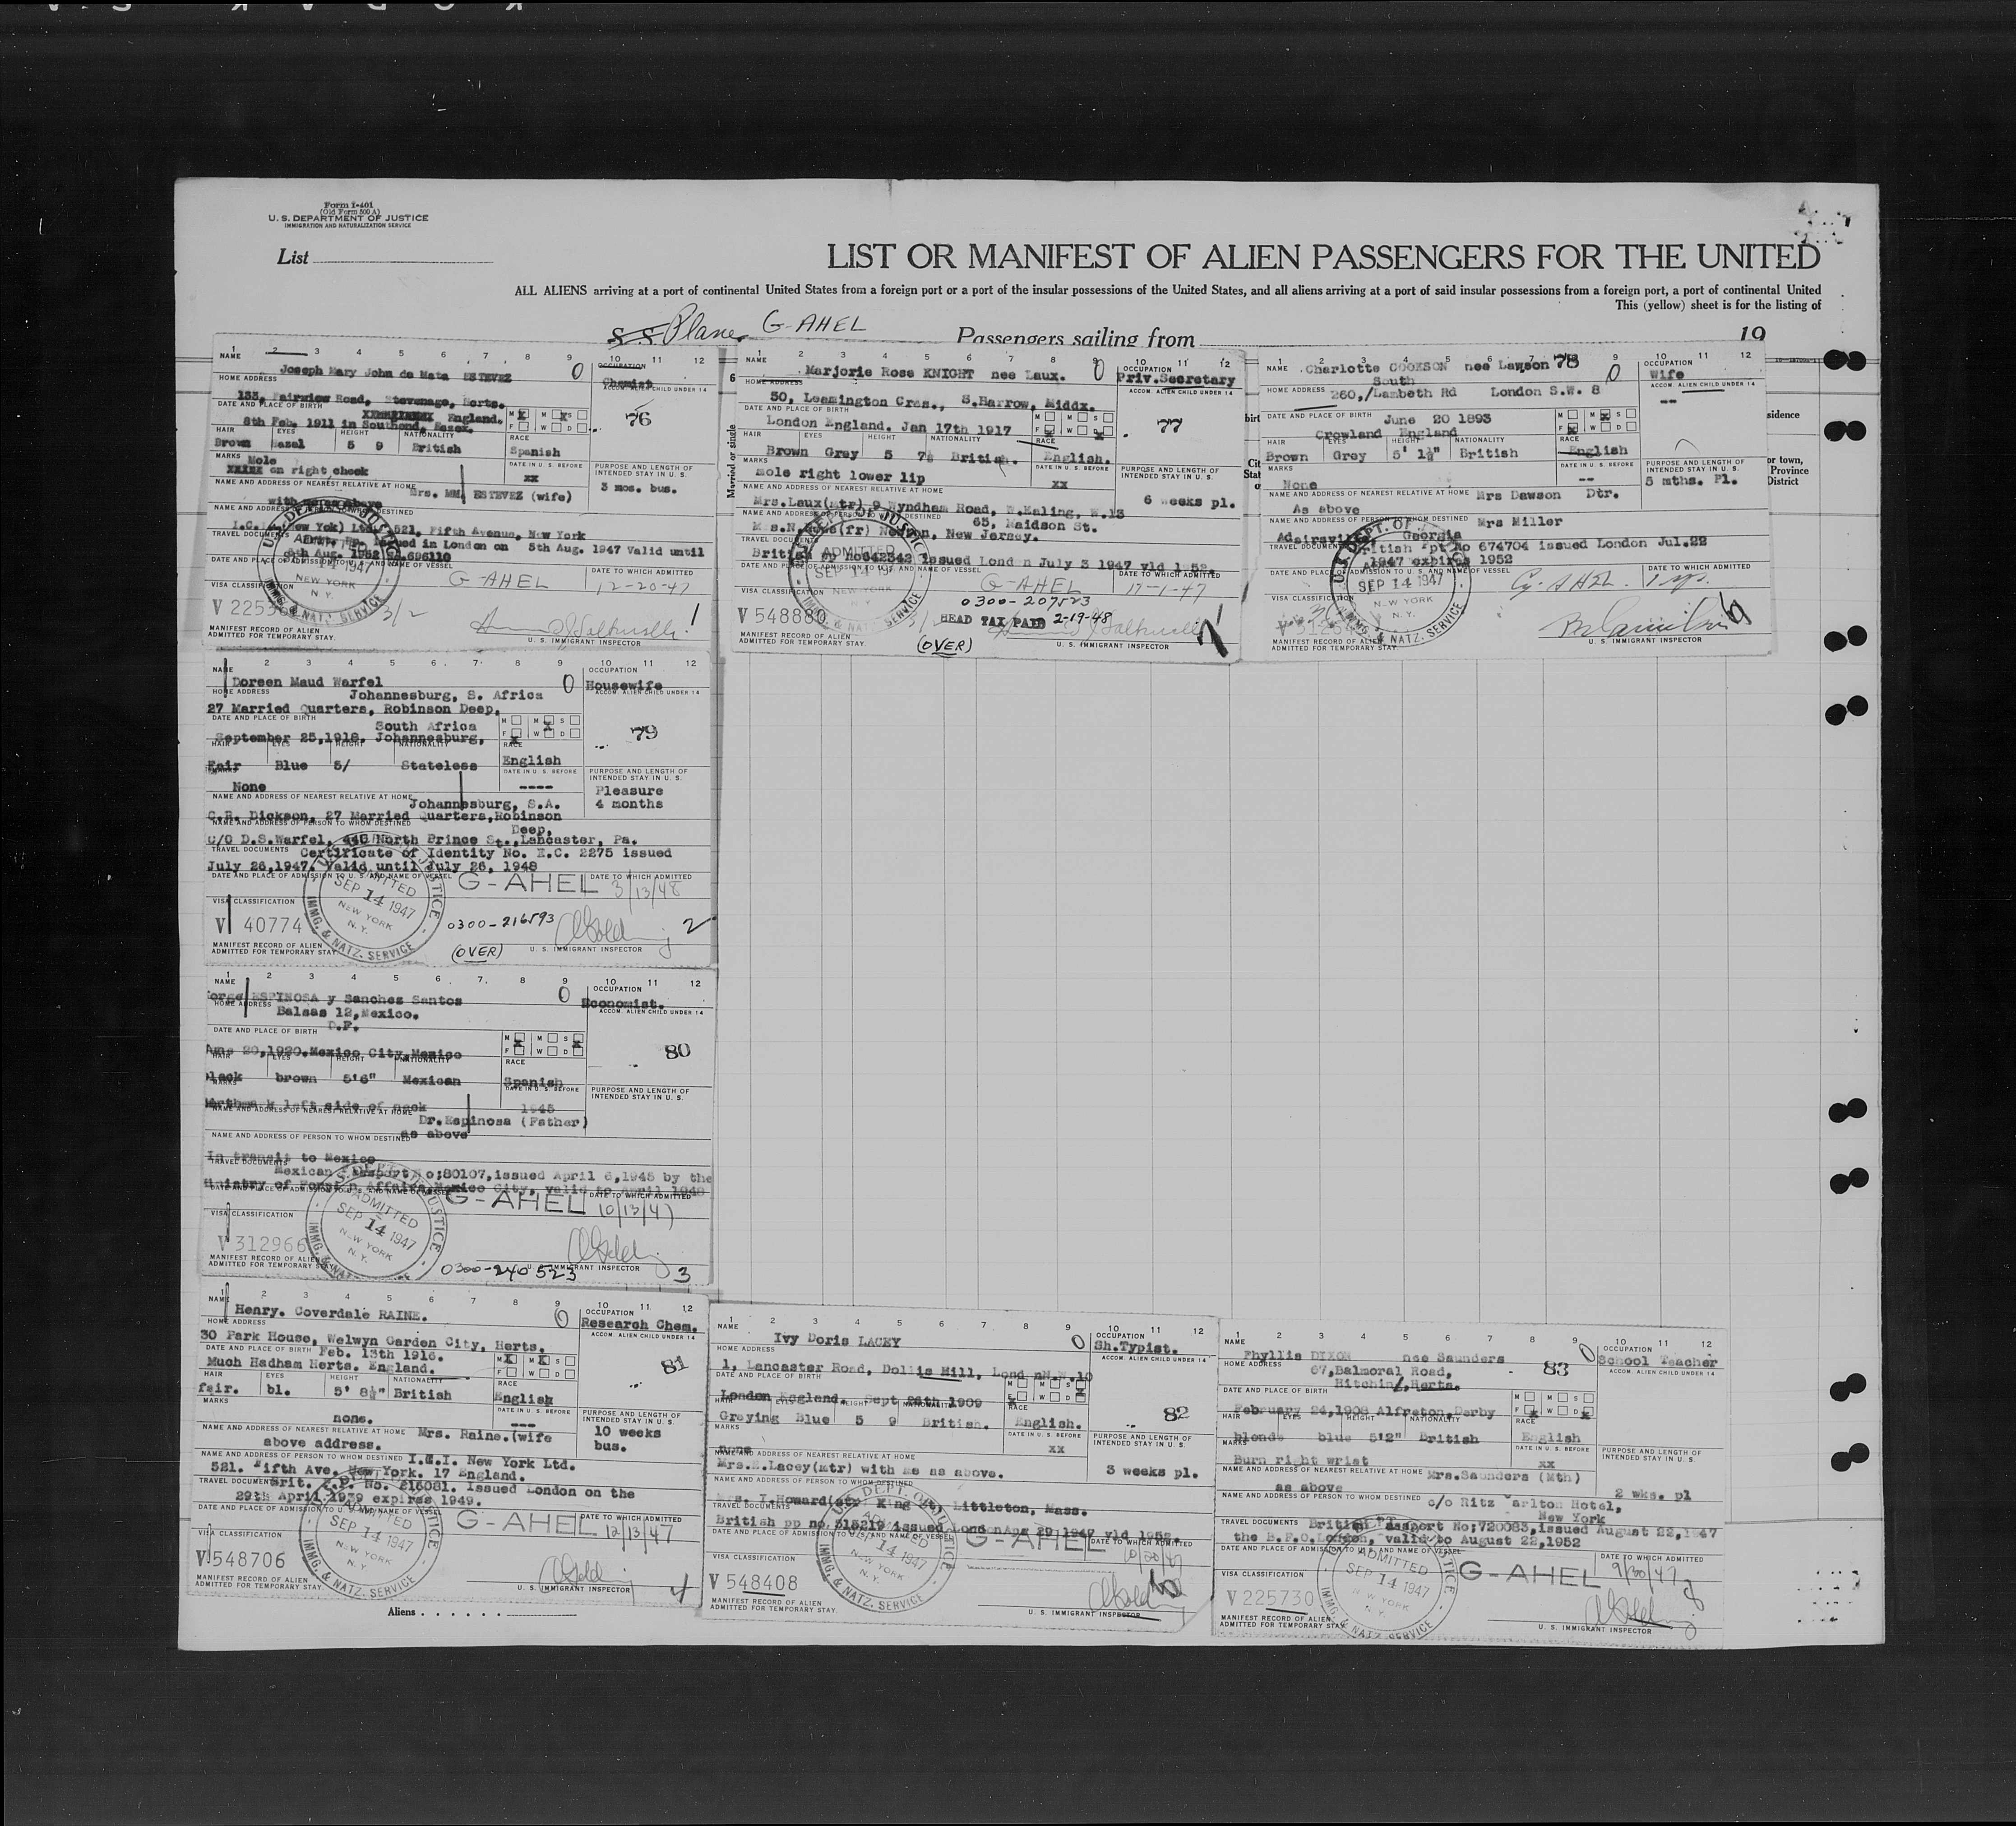 Form I-401
(Old Form 500 A)
U. S. DEPARTMENT OF JUSTICE
IMMIGRATION AND NATURALIZATION SERVICE
List
LIST OR MANIFEST OF ALIEN PASSENGERS FOR THE UNITED
ALL ALIENS arriving at a port of continental United States from a foreign port or a port of the insular possessions of the United States, and all aliens arriving at a port of said insular possessions from a foreign port, a port of continental United
This (yellow) sheet is for the listing of
S S Plane G-AHEL Passengers sailing from 19
1 2 3 4 5 6 7 8 9 10 11 12
NAME
OCCUPATION
Joseph Mary John de Mata ESTEVEZ 0
Chemist
HOME ADDRESS
ACCOM. ALIEN CHILD UNDER 14
133, Fairview Road, Stevenage, Herts.
DATE AND PLACE OF BIRTH
England.
8th Feb. 1911 in Southend, Essex.
76
HAIR EYES HEIGHT NATIONALITY RACE
Brown Hazel 5 9 British Spanish
MARKS
Mole
on right cheek
DATE IN U. S. BEFORE
xx
PURPOSE AND LENGTH OF INTENDED STAY IN U. S.
3 mos. bus.
NAME AND ADDRESS OF NEAREST RELATIVE AT HOME
Mrs. MM. ESTEVEZ (wife)
with me as above
NAME AND ADDRESS OF PERSON TO WHOM DESTINED
I.C.I. (New Yok) Ltd. 521, Fifth Avenue, New York
TRAVEL DOCUMENTS
issued in London on 5th Aug. 1947 Valid until
5th Aug. 1952 No.696110
DATE AND PLACE OF ADMISSION TO U. S. AND NAME OF VESSEL
G-AHEL
DATE TO WHICH ADMITTED
12-20-47
VISA CLASSIFICATION
V 2253
3/2
1
MANIFEST RECORD OF ALIEN
ADMITTED FOR TEMPORARY STAY.
U. S. IMMIGRANT INSPECTOR
1 2 3 4 5 6 7 8 9 10 11 12
NAME
Marjorie Rose KNIGHT nee Laux. 0
OCCUPATION
Priv.Secretary
HOME ADDRESS
ACCOM. ALIEN CHILD UNDER 14
50, Leamington Cres., S.Harrow, Middx.
DATE AND PLACE OF BIRTH
London England. Jan 17th 1917
77
HAIR EYES HEIGHT NATIONALITY RACE
Brown Grey 5 7½ British. English.
MARKS
mole right lower lip
DATE IN U. S. BEFORE
xx
PURPOSE AND LENGTH OF INTENDED STAY IN U. S.
6 weeks pl.
NAME AND ADDRESS OF NEAREST RELATIVE AT HOME
Mrs.Laux(mtr) 9 Wyndham Road, W.Ealing, W.13
NAME AND ADDRESS OF PERSON TO WHOM DESTINED
65, Maidson St.
Newton, New Jersey.
TRAVEL DOCUMENTS
British pp no642342 issued Lond n July 3 1947 vld 1952.
DATE AND PLACE OF ADMISSION TO U. S. AND NAME OF VESSEL
G-AHEL
DATE TO WHICH ADMITTED
VISA CLASSIFICATION
0300-207523
V 548880
HEAD TAX PAID 2-19-48
(OVER)
MANIFEST RECORD OF ALIEN
ADMITTED FOR TEMPORARY STAY.
U. S. IMMIGRANT INSPECTOR
1 2 3 4 5 6 7 8 9 10 11 12
NAME
Charlotte COOKSON nee Lawson 78 0
OCCUPATION
Wife
HOME ADDRESS
South
260,/Lambeth Rd London S.W. 8
ACCOM. ALIEN CHILD UNDER 14
--
DATE AND PLACE OF BIRTH
June 20 1893
Crowland England
HAIR EYES HEIGHT NATIONALITY RACE
Brown Grey 5' 1½" British English
MARKS
None
DATE IN U. S. BEFORE
--
PURPOSE AND LENGTH OF INTENDED STAY IN U. S.
5 mths. Pl.
NAME AND ADDRESS OF NEAREST RELATIVE AT HOME
Mrs Dawson Dtr.
As above
NAME AND ADDRESS OF PERSON TO WHOM DESTINED
Mrs Miller
Adairsville, Georgia
TRAVEL DOCUMENTS
British ppt No 674704 issued London Jul.22
1947 expires 1952
DATE AND PLACE OF ADMISSION TO U. S. AND NAME OF VESSEL
DATE TO WHICH ADMITTED
SEP 14 1947
NEW YORK
N. Y.
VISA CLASSIFICATION
MANIFEST RECORD OF ALIEN
ADMITTED FOR TEMPORARY STAY
U. S. IMMIGRANT INSPECTOR
2 3 4 5 6 7 8 9 10 11 12
NAME
Doreen Maud Warfel 0
OCCUPATION
Housewife
HOME ADDRESS
ACCOM. ALIEN CHILD UNDER 14
Johannesburg, S. Africa
27 Married Quarters, Robinson Deep,
DATE AND PLACE OF BIRTH
South Africa
September 25,1918, Johannesburg,
79
HAIR EYES HEIGHT NATIONALITY RACE
Fair Blue 5/ Stateless English
MARKS
None
DATE IN U. S. BEFORE
----
PURPOSE AND LENGTH OF INTENDED STAY IN U. S.
Pleasure
4 months
NAME AND ADDRESS OF NEAREST RELATIVE AT HOME
Johannesburg, S.A.
C.R. Dickson, 27 Married Quarters,Robinson
Deep,
NAME AND ADDRESS OF PERSON TO WHOM DESTINED
c/O D.S.Warfel, 446 North Prince St.,Lancaster, Pa.
TRAVEL DOCUMENTS
Certificate of Identity No. E.C. 2275 issued
July 26,1947. Valid until July 26, 1948
DATE AND PLACE OF ADMISSION TO U. S. AND NAME OF VESSEL
G-AHEL
DATE TO WHICH ADMITTED
3/13/48
ADMITTED
SEP 14 1947
NEW YORK
N. Y.
IMMG. & NATZ. SERVICE
VISA CLASSIFICATION
V 40774
0300-216593
2
(OVER)
MANIFEST RECORD OF ALIEN
ADMITTED FOR TEMPORARY STAY
U. S. IMMIGRANT INSPECTOR
1 2 3 4 5 6 7 8 9 10 11 12
NAME
orge ESPINOSA y Sanchez Santos 0
OCCUPATION
Economist.
HOME ADDRESS
ACCOM. ALIEN CHILD UNDER 14
Balsas 12,Mexico.
D.F.
DATE AND PLACE OF BIRTH
20,1920.Mexico City,Mexico
80
HAIR EYES HEIGHT NATIONALITY RACE
black brown 5'6" Mexican Spanish
MARKS
left side of neck
DATE IN U. S. BEFORE
1945
PURPOSE AND LENGTH OF INTENDED STAY IN U. S.
NAME AND ADDRESS OF NEAREST RELATIVE AT HOME
Dr.Espinosa (Father)
as above
NAME AND ADDRESS OF PERSON TO WHOM DESTINED
In transit to Mexico
TRAVEL DOCUMENTS
Mexican Passport No;80107,issued April 6,1945 by the
Ministry of Foreign Affairs,Mexico City, valid to April 1948
DATE AND PLACE OF ADMISSION TO U. S. AND NAME OF VESSEL
G-AHEL
DATE TO WHICH ADMITTED
10/13/47
ADMITTED
SEP 14 1947
NEW YORK
N. Y.
VISA CLASSIFICATION
V 312966
0300-240523
3
MANIFEST RECORD OF ALIEN
ADMITTED FOR TEMPORARY STAY
U. S. IMMIGRANT INSPECTOR
1 2 3 4 5 6 7 8 9 10 11 12
NAME
Henry. Coverdale RAINE. 0
OCCUPATION
Research Chem.
HOME ADDRESS
ACCOM. ALIEN CHILD UNDER 14
30 Park House, Welwyn Garden City, Herts.
DATE AND PLACE OF BIRTH
Feb. 13th 1916.
Much Hadham Herts. England.
81
HAIR EYES HEIGHT NATIONALITY RACE
fair. bl. 5' 8½" British English
MARKS
none.
DATE IN U. S. BEFORE
---
PURPOSE AND LENGTH OF INTENDED STAY IN U. S.
10 weeks
bus.
NAME AND ADDRESS OF NEAREST RELATIVE AT HOME
Mrs. Raine.(wife
above address.
NAME AND ADDRESS OF PERSON TO WHOM DESTINED
I.C.I. New York Ltd.
521. Fifth Ave. New York. 17 England.
TRAVEL DOCUMENTS
Brit. P.P. No. 216081. Issued London on the
29th April 1939 expires 1949.
DATE AND PLACE OF ADMISSION TO U. S. AND NAME OF VESSEL
G-AHEL
DATE TO WHICH ADMITTED
12/13/47
SEP 14 1947
NEW YORK
N. Y.
IMMG. & NATZ. SERVICE
VISA CLASSIFICATION
V 548706
4
MANIFEST RECORD OF ALIEN
ADMITTED FOR TEMPORARY STAY
U. S. IMMIGRANT INSPECTOR
1 2 3 4 5 6 7 8 9 10 11 12
NAME
Ivy Doris LACEY 0
OCCUPATION
Sh.Typist.
HOME ADDRESS
ACCOM. ALIEN CHILD UNDER 14
1, Lancaster Road, Dollis Hill, Lond nN.W.10
DATE AND PLACE OF BIRTH
London England. Sept 26th 1909
82
HAIR EYES HEIGHT NATIONALITY RACE
Greying Blue 5 9 British. English.
MARKS
none
DATE IN U. S. BEFORE
xx
PURPOSE AND LENGTH OF INTENDED STAY IN U. S.
3 weeks pl.
NAME AND ADDRESS OF NEAREST RELATIVE AT HOME
Mrs.E.Lacey(mtr) with me as above.
NAME AND ADDRESS OF PERSON TO WHOM DESTINED
I.Howard King St, Littleton, Mass.
TRAVEL DOCUMENTS
British pp no.315219 issued London 29 1947 vld 1952.
DATE AND PLACE OF ADMISSION TO U. S. AND NAME OF VESSEL
G-AHEL
DATE TO WHICH ADMITTED
14 1947
NEW YORK
N. Y.
IMMG. & NATZ. SERVICE
VISA CLASSIFICATION
V 548408
MANIFEST RECORD OF ALIEN
ADMITTED FOR TEMPORARY STAY.
U. S. IMMIGRANT INSPECTOR
1 2 3 4 5 6 7 8 9 10 11 12
NAME
Phyllis DIXON nee Saunders 83 0
OCCUPATION
School Teacher
HOME ADDRESS
ACCOM. ALIEN CHILD UNDER 14
67,Balmoral Road,
Hitchin,Herts.
DATE AND PLACE OF BIRTH
February 24,1908 Alfreton,Derby
HAIR EYES HEIGHT NATIONALITY RACE
blonde blue 5'2" British English
MARKS
Burn right wrist
DATE IN U. S. BEFORE
xx
PURPOSE AND LENGTH OF INTENDED STAY IN U. S.
2 wks. pl
NAME AND ADDRESS OF NEAREST RELATIVE AT HOME
Mrs.Saunders (Mth)
as above
NAME AND ADDRESS OF PERSON TO WHOM DESTINED
c/o Ritz Carlton Hotel,
New York
TRAVEL DOCUMENTS
British Passport No;720083,issued August 22,1947
the B.F.O.London, valid to August 22,1952
DATE AND PLACE OF ADMISSION TO U. S. AND NAME OF VESSEL
G-AHEL
DATE TO WHICH ADMITTED
9/30/47
ADMITTED
SEP 14 1947
NEW YORK
N. Y.
VISA CLASSIFICATION
V 225730
MANIFEST RECORD OF ALIEN
ADMITTED FOR TEMPORARY STAY
U. S. IMMIGRANT INSPECTOR
Aliens . . . . . .